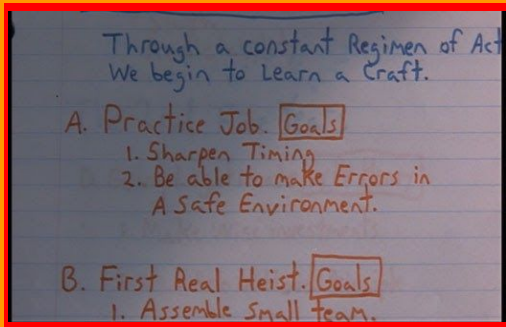 Through a constant Regimen of Act
We begin to Learn a Craft.
A. Practice Job. Goals
1. Sharpen Timing
2. Be able to make Errors in
A Safe Environment.
B. First Real Heist. Goals
1. Assemble Small team.